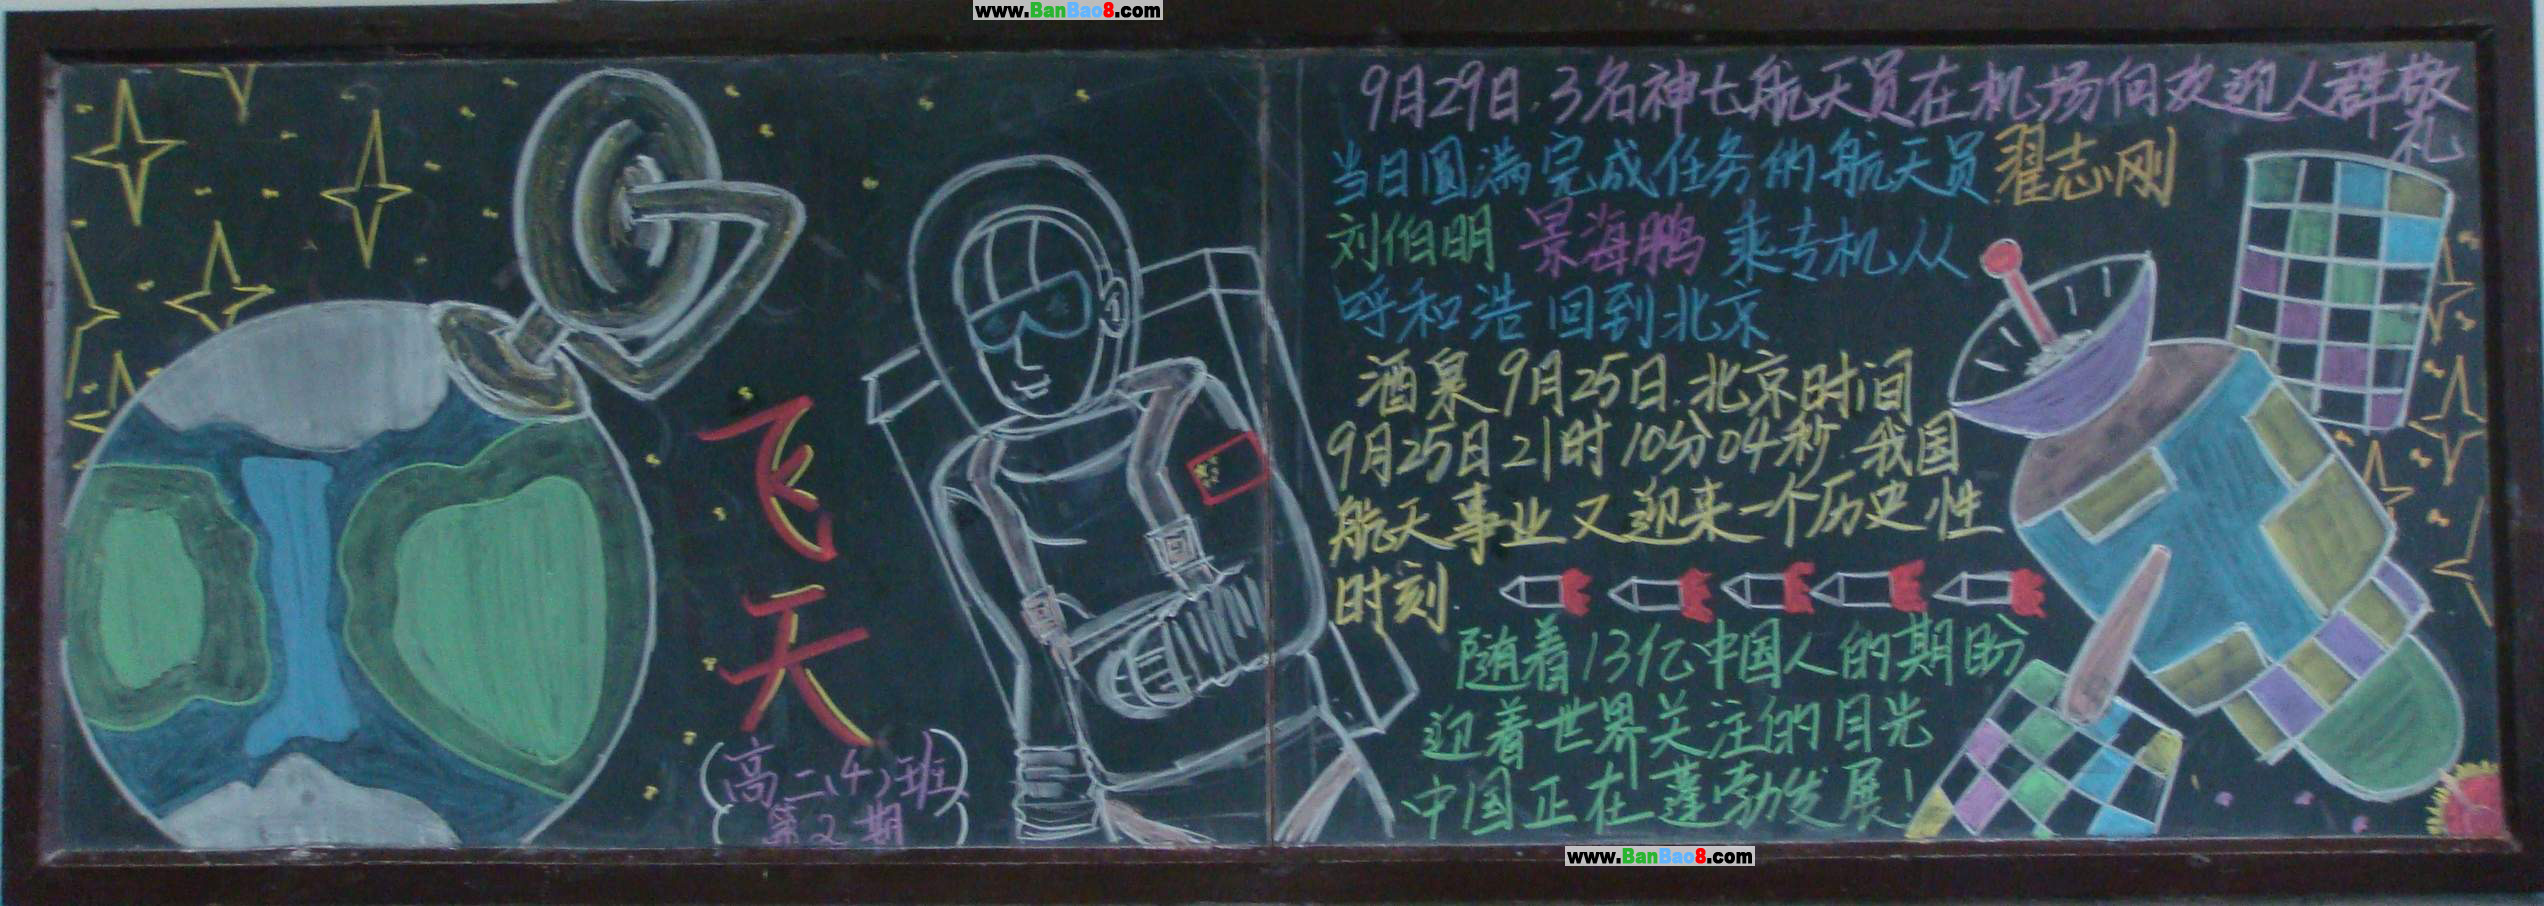 www.BanBao8.com
飞天
高二(4)班
第2期
9月29日.3名神七航天员在机场向欢迎人群敬礼
当日圆满完成任务的航天员翟志刚
刘伯明 景海鹏 乘专机从
呼和浩 回到北京
酒泉9月25日.北京时间
9月25日21时10分04秒.我国
航天事业又迎来一个历史性
时刻.
随着13亿中国人的期盼
迎着世界关注的目光
中国正在蓬勃发展!
www.BanBao8.com